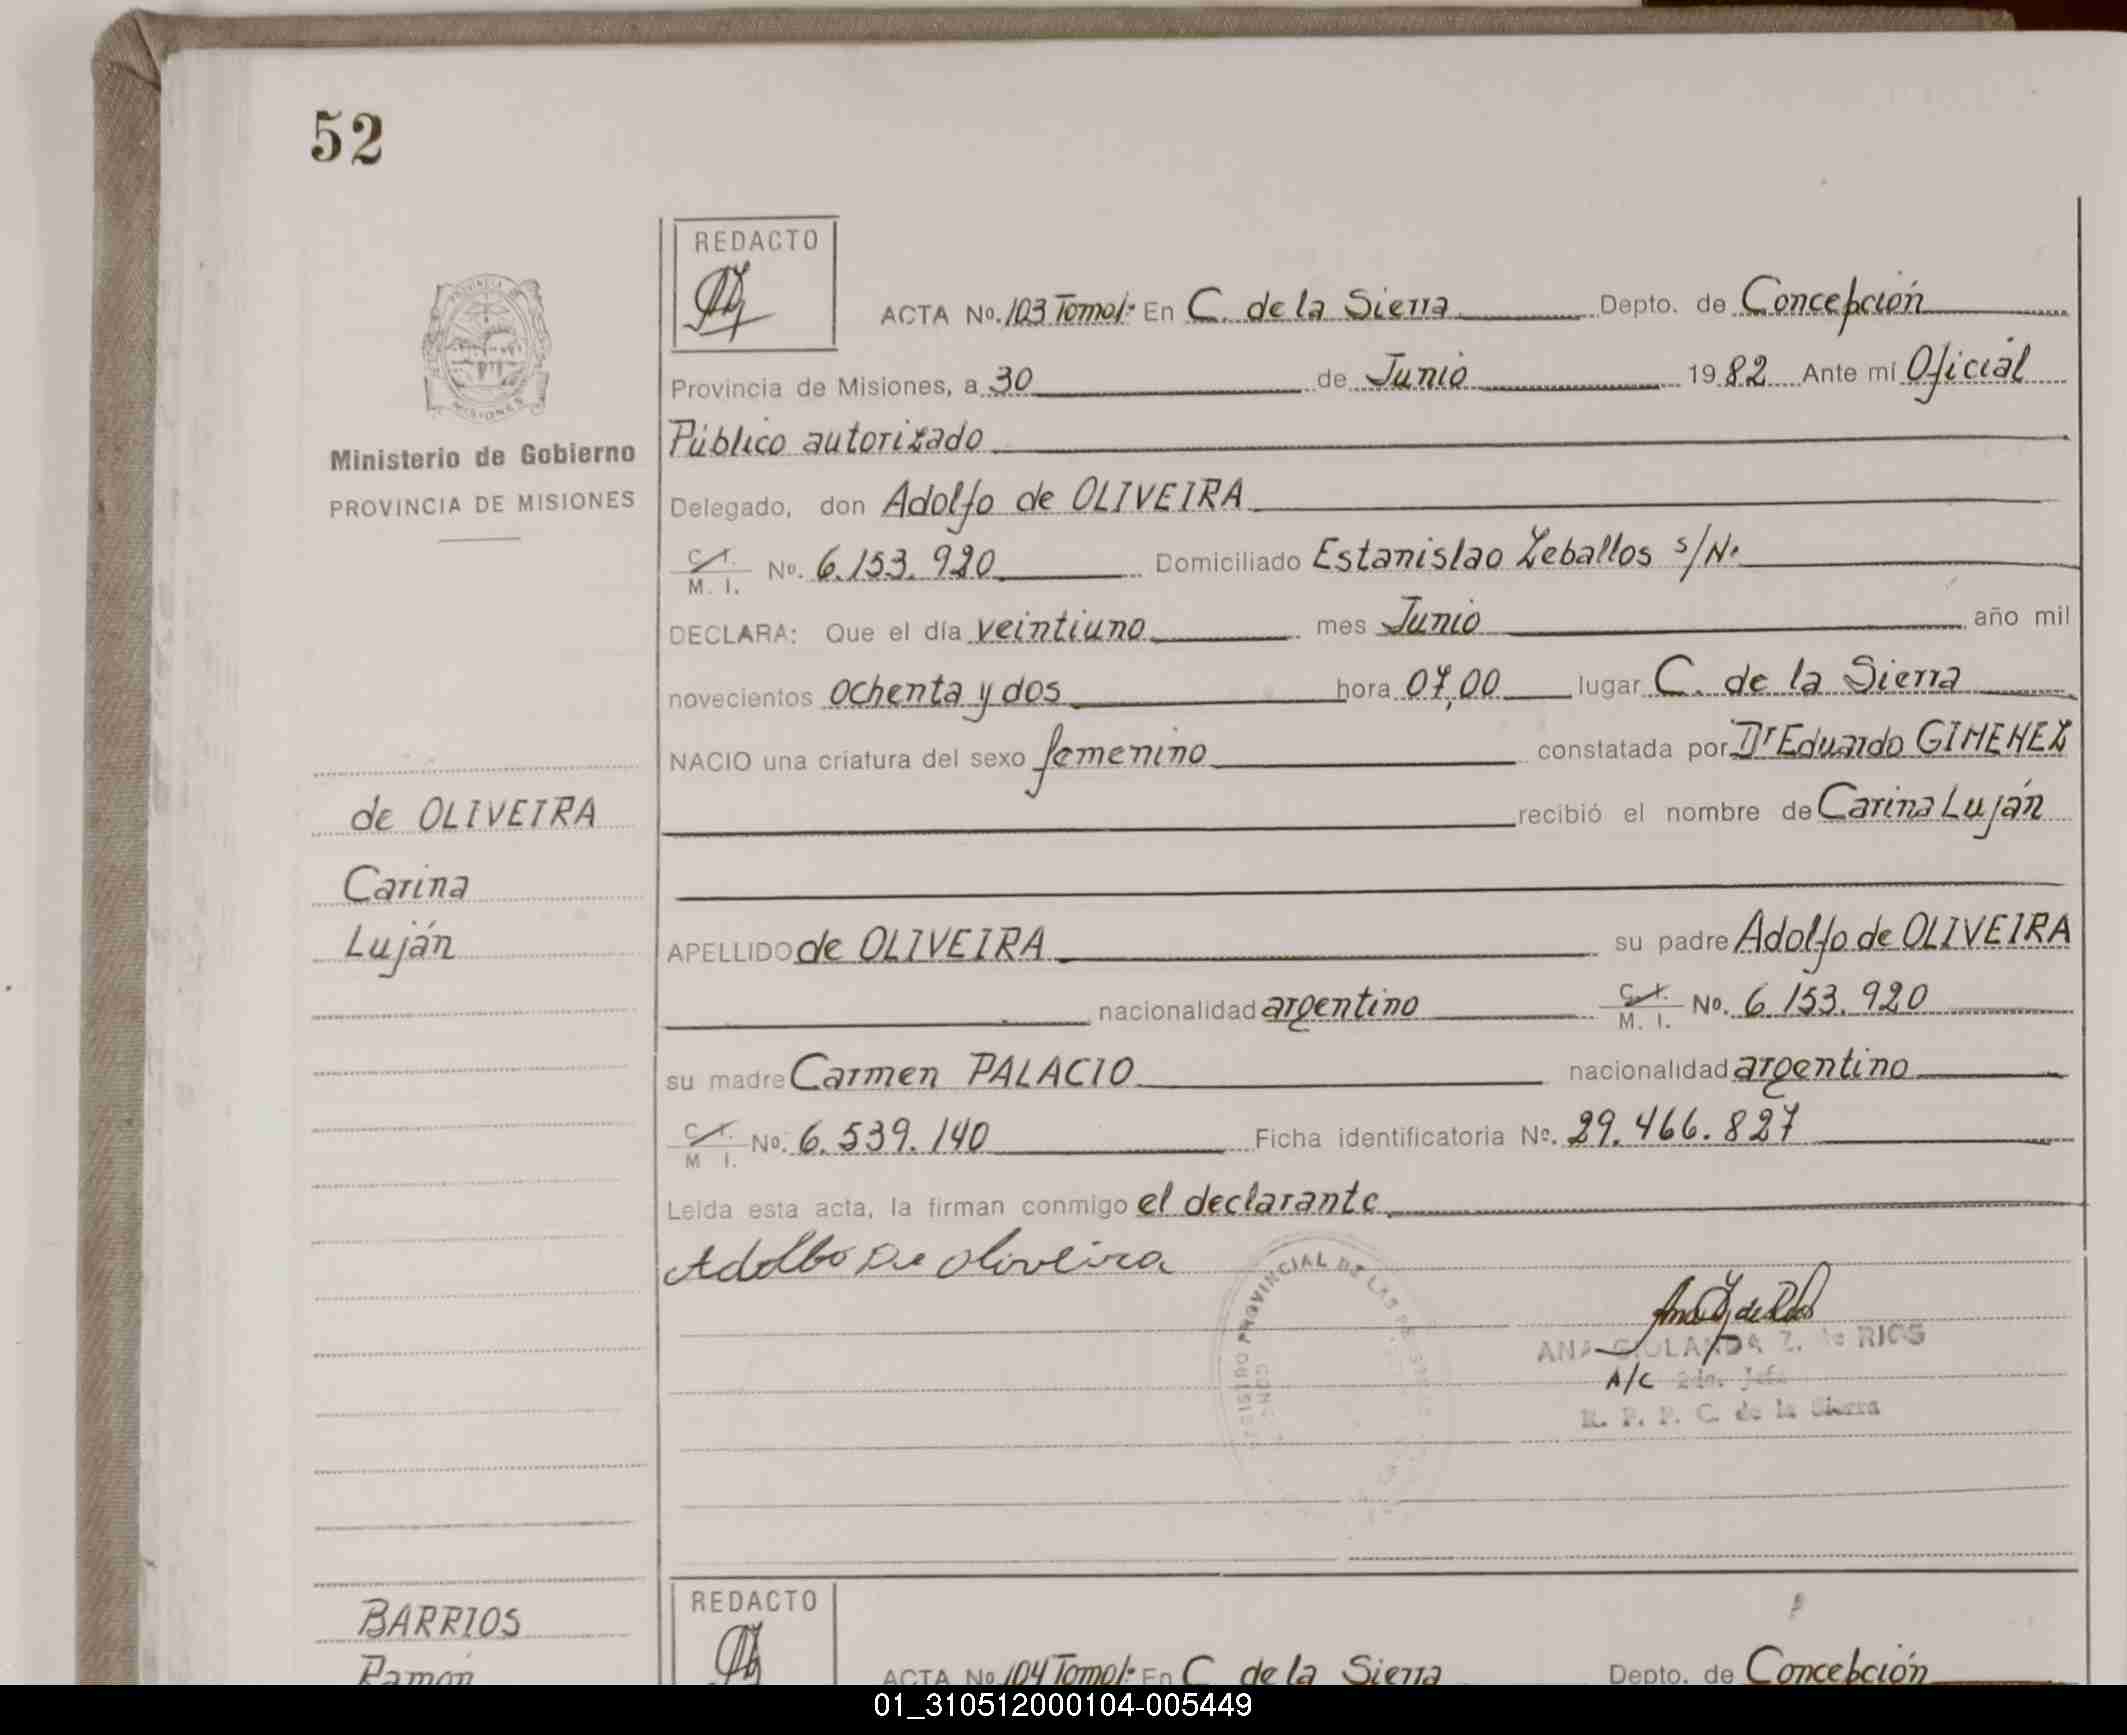 52
REDACTO
ACTA No. 103 Tomo 1º En C. de la Sierra Depto. de Concepción
Provincia de Misiones, a 30 de Junio 1982 Ante mí Oficial
Ministerio de Gobierno
PROVINCIA DE MISIONES
Público autorizado
Delegado, don Adolfo de OLIVEIRA
C. I. M. I. No. 6.153.920 Domiciliado Estanislao Zeballos s/Nº
DECLARA: Que el día veintiuno mes Junio año mil
novecientos ochenta y dos hora 07,00 lugar C. de la Sierra
NACIO una criatura del sexo femenino constatada por Dr Eduardo GIMENEZ
recibió el nombre de Carina Luján
de OLIVEIRA
Carina
Luján
APELLIDO de OLIVEIRA su padre Adolfo de OLIVEIRA
nacionalidad argentino C. I. M. I. No. 6.153.920
su madre Carmen PALACIO nacionalidad argentino
C. I. M. I. No. 6.539.140 Ficha identificatoria No. 29.466.827
Leída esta acta, la firman conmigo el declarante
Adolfo De Oliveira
REGISTRO PROVINCIAL DE LAS
ANA GIOLANDA Z. de RIOS
A/C 2do. Jefe
R. P. P. C. de la Sierra
BARRIOS
Ramón
REDACTO
ACTA No. 104 Tomo 1º En C. de la Sierra Depto. de Concepción
01_310512000104-005449